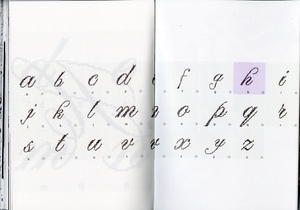 a b c d f g h i
j k l m n o p q r
s t u v v x y z